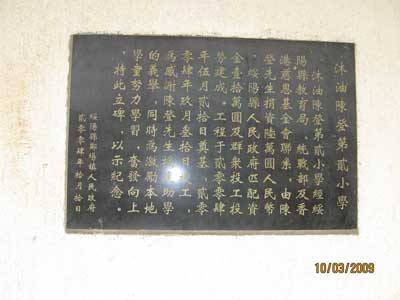 沐油陳登第貳小學
沐油陳登第貳小學經綏
陽縣教育局、統戰部及香
港慈恩基金會聯系，由陳
登先生捐資陸萬圓人民幣
、綏陽縣人民政府匹配資
金壹拾萬圓及群衆投工投
勞建成。工程于貳零零肆
年伍月貳拾日奠基，貳零
零肆年玖月叁拾日 工，
為感謝陳登先生 助學
的義舉，同時為激勵本地
學童努力學習，奮發向上
，特此立碑，以示紀念。
綏陽縣鄭場鎮人民政府
貳零零肆年拾月拾日
10/03/2009